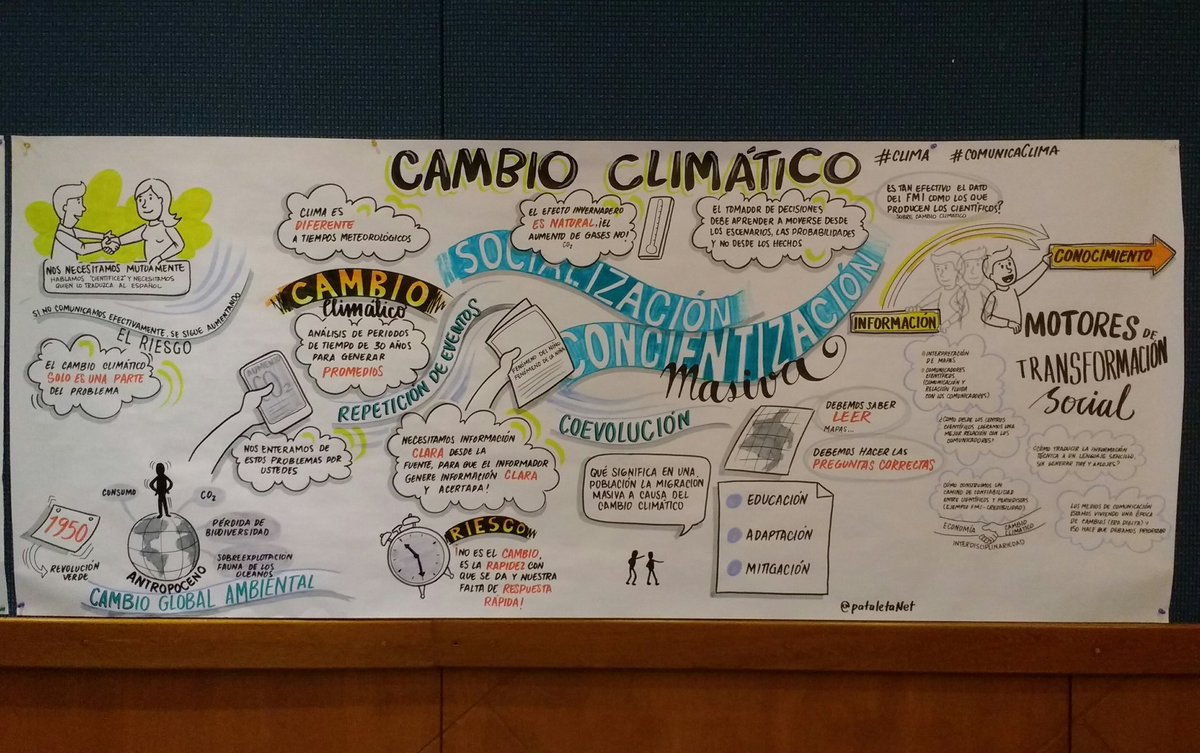 CAMBIO CLIMÁTICO
#CLIMA #COMUNICACLIMA
NOS NECESITAMOS MUTUAMENTE
HABLAMOS "CIENTIFICEZ" Y NECESITAMOS
QUIEN LO TRADUZCA AL ESPAÑOL
SI NO COMUNICAMOS EFECTIVAMENTE, SE SIGUE AUMENTANDO
EL RIESGO
EL CAMBIO CLIMÁTICO
SOLO ES UNA PARTE
DEL PROBLEMA
CLIMA ES
DIFERENTE
A TIEMPOS METEOROLÓGICOS
CAMBIO
Climático
ANÁLISIS DE PERIODOS
DE TIEMPO DE 30 AÑOS
PARA GENERAR
PROMEDIOS
AUMENTAN
CO2
NOS ENTERAMOS DE
ESTOS PROBLEMAS POR
USTEDES
1950
REVOLUCIÓN
VERDE
CONSUMO
CO2
PÉRDIDA DE
BIODIVERSIDAD
SOBREEXPLOTACIÓN
FAUNA DE LOS
OCEANOS
ANTROPOCENO
CAMBIO GLOBAL AMBIENTAL
REPETICIÓN DE EVENTOS
FENÓMENO DEL NIÑO
FENÓMENO DE LA NIÑA
EL EFECTO INVERNADERO
ES NATURAL, ¡EL
AUMENTO DE GASES NO!
CO2
EL TOMADOR DE DECISIONES
DEBE APRENDER A MOVERSE DESDE
LOS ESCENARIOS, LAS PROBABILIDADES
Y NO DESDE LOS HECHOS
SOCIALIZACIÓN
CONCIENTIZACIÓN
Masiva
COEVOLUCIÓN
NECESITAMOS INFORMACIÓN
CLARA DESDE LA
FUENTE, PARA QUE EL INFORMADOR
GENERE INFORMACIÓN CLARA
Y ACERTADA!
RIESGO
¡NO ES EL CAMBIO,
ES LA RAPIDEZ CON
QUE SE DA Y NUESTRA
FALTA DE RESPUESTA
RAPIDA!
QUÉ SIGNIFICA EN UNA
POBLACIÓN LA MIGRACIÓN
MASIVA A CAUSA DEL
CAMBIO CLIMÁTICO
EDUCACIÓN
ADAPTACIÓN
MITIGACIÓN
DEBEMOS SABER
LEER
MAPAS...
DEBEMOS HACER LAS
PREGUNTAS CORRECTAS
ES TAN EFECTIVO EL DATO
DEL FMI COMO LOS QUE
PRODUCEN LOS CIENTÍFICOS?
SOBRE CAMBIO CLIMÁTICO
INFORMACIÓN
CONOCIMIENTO
MOTORES DE
TRANSFORMACIÓN
Social
INTERPRETACIÓN
DE MAPAS
COMUNICADORES
CIENTÍFICOS
(COMUNICACIÓN Y
RELACIÓN FLUIDA
CON LOS COMUNICADORES)
¿COMO DESDE LOS CENTROS
CIENTÍFICOS LOGRAMOS UNA
MEJOR RELACIÓN CON LOS
COMUNICADORES?
¿CÓMO TRADUCIR LA INFORMACIÓN
TÉCNICA A UN LENGUAJE SENCILLO,
SIN GENERAR
CÓMO CONSTRUIMOS UN
CAMINO DE CONFIABILIDAD
ENTRE CIENTÍFICOS Y PERIODISTAS
(EJEMPLO FMI-CREDIBILIDAD)
ECONOMÍA
CAMBIO
CLIMÁTICO
INTERDISCIPLINARIEDAD
LOS MEDIOS DE COMUNICACIÓN
ESTAMOS VIVIENDO UNA ÉPOCA
DE CAMBIOS (ERA DIGITAL) Y
ESO HACE QUE DEBAMOS PRIORIZAR
@pataletaNet